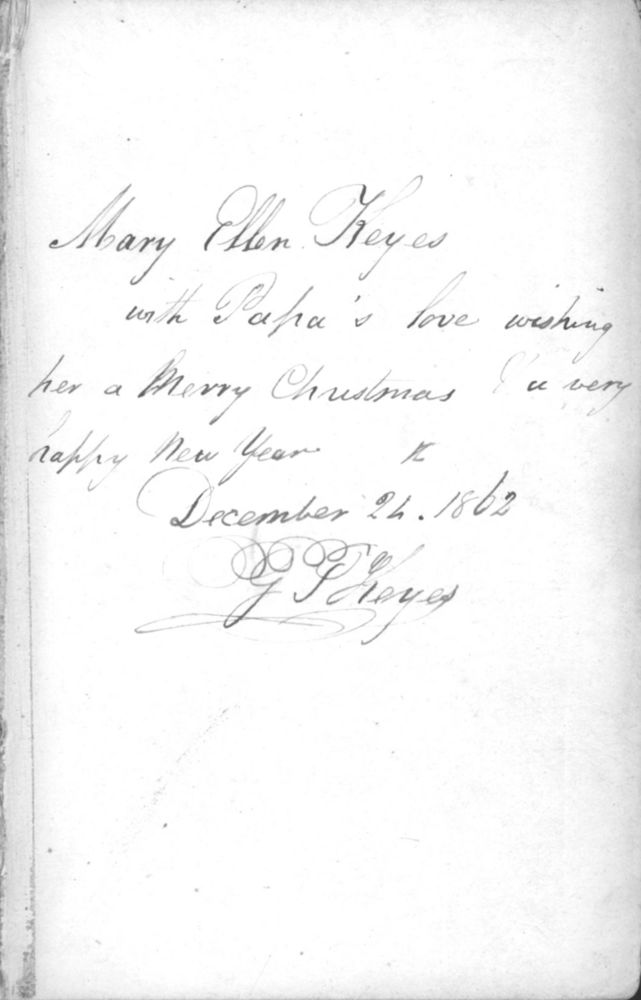 Mary Ellen Keyes
with Papa's love wishing
her a Merry Christmas & a very
happy New Year
December 24. 1862
G T Keyes